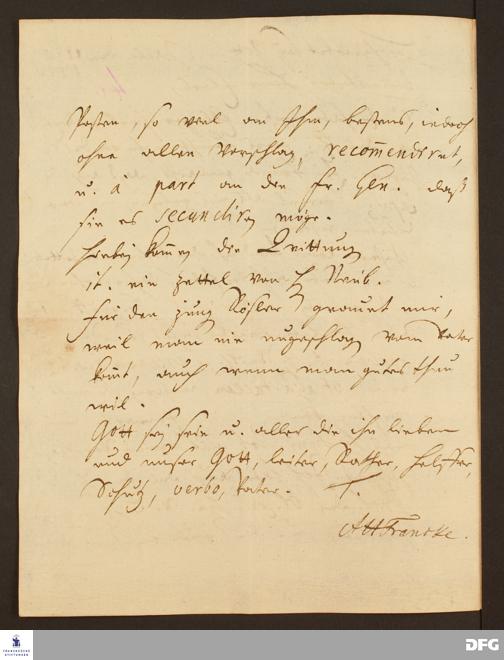 Posten, so viel an Ihm, bestens, iedoch
ohne allen Vorschlag, recom̄endiret,
u. à part an den Hr. Gen. daß
sie es secundiren möge.
Hierbey kom̄en die Quittung
it. ein Zettel von H Neub.
Für den jung Rösler grauet mir,
weil man nie ungeschlagen vom Vater
kom̄t, auch wenn man gutes thun
wil.
Gott sey sein u. aller die ihn lieben
und unser Gott, leiter, Rather, Helffer,
Schutz, verbo, Vater. T.
AHFrancke.
FRANCKESCHE
STIFTUNGEN
DFG